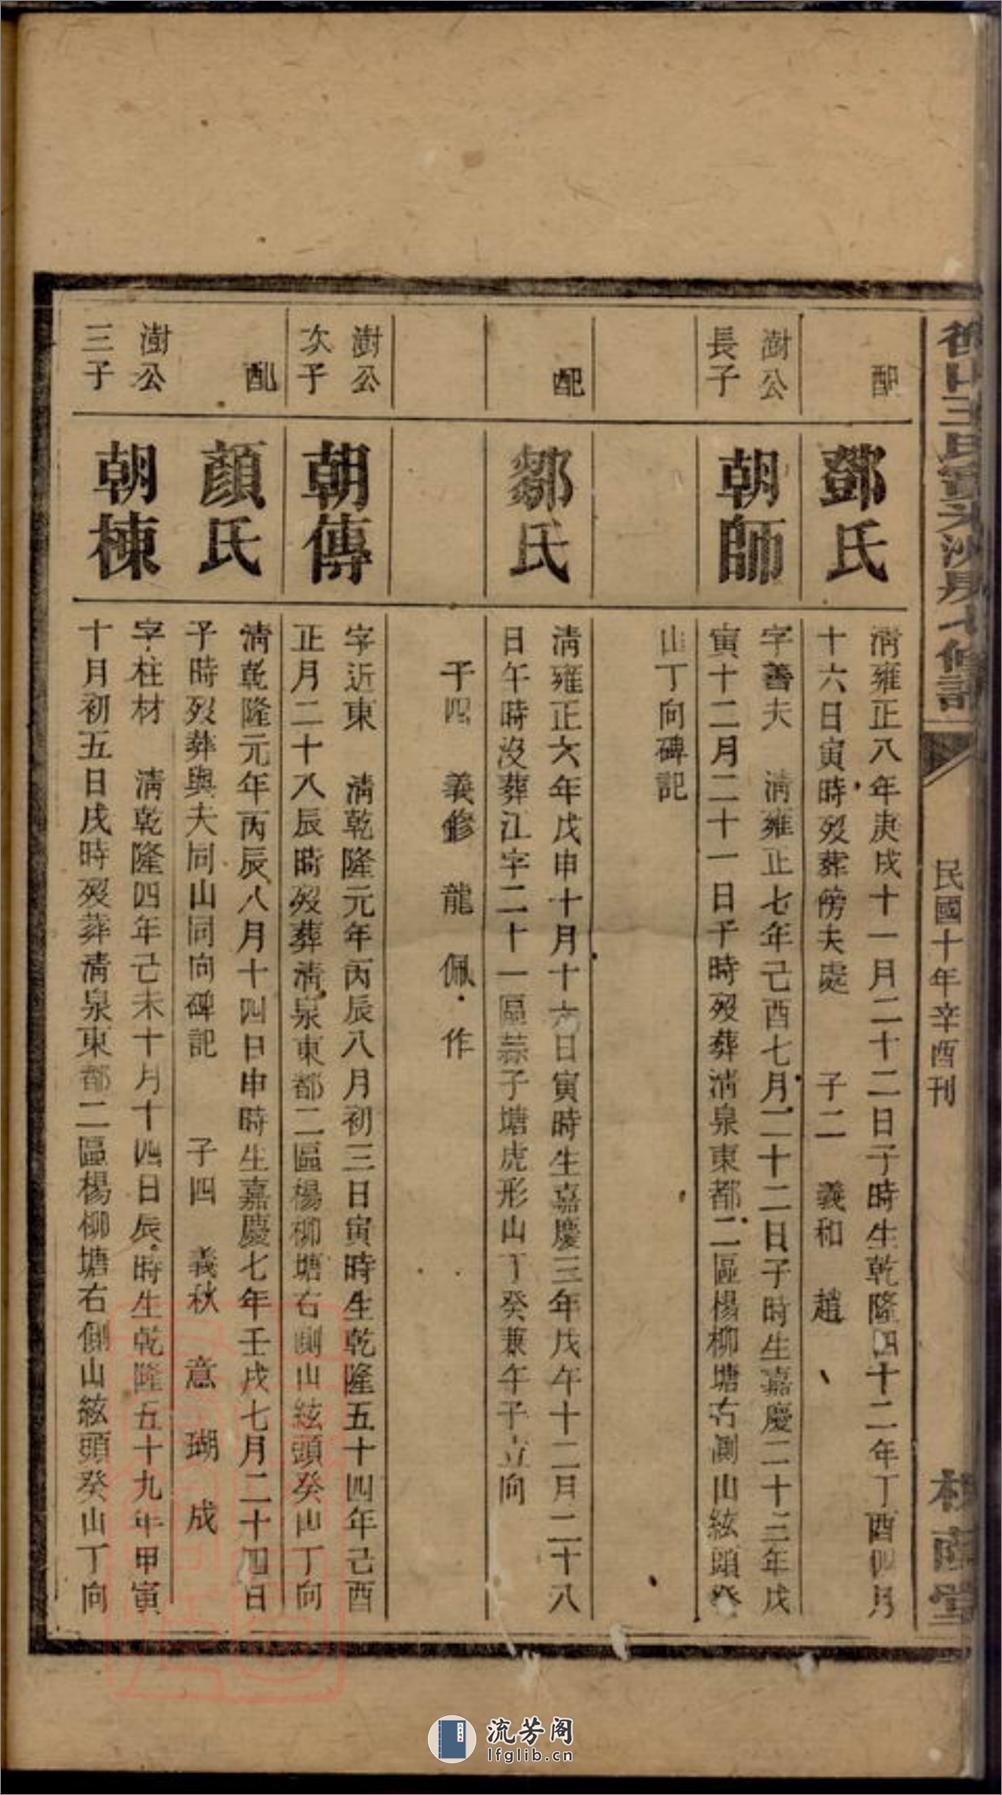 王氏
七修譜
民國十年辛酉刊
堂
配
鄧氏
清雍正八年庚戌十一月二十二日子時生乾隆四十二年丁酉四月
十六日寅時歿葬傍夫處 子二 義和 趙
澍公
長子
朝師
字善夫 清雍正七年己酉七月二十二日子時生嘉慶二十三年戊
寅十二月二十一日子時歿葬清泉東都二區楊柳塘右側山絃頭癸
山丁向碑記
配
鄒氏
清雍正六年戊申十月十六日寅時生嘉慶三年戊午十二月二十八
日午時沒葬江字二十一區蒜子塘虎形山丁癸兼午子立向
子四 義修 龍 佩 作
澍公
次子
朝傳
字近東 清乾隆元年丙辰八月初三日寅時生乾隆五十四年己酉
正月二十八辰時歿葬清泉東都二區楊柳塘右側山絃頭癸山丁向
配
顏氏
清乾隆元年丙辰八月十四日申時生嘉慶七年壬戌七月二十四日
子時歿葬與夫同山同向碑記 子四 義秋 意 瑚 成
澍公
三子
朝棟
字柱材 清乾隆四年己未十月十四日辰時生乾隆五十九年甲寅
十月初五日戌時歿葬清泉東都二區楊柳塘右側山絃頭癸山丁向
流芳阁
lfglib.cn